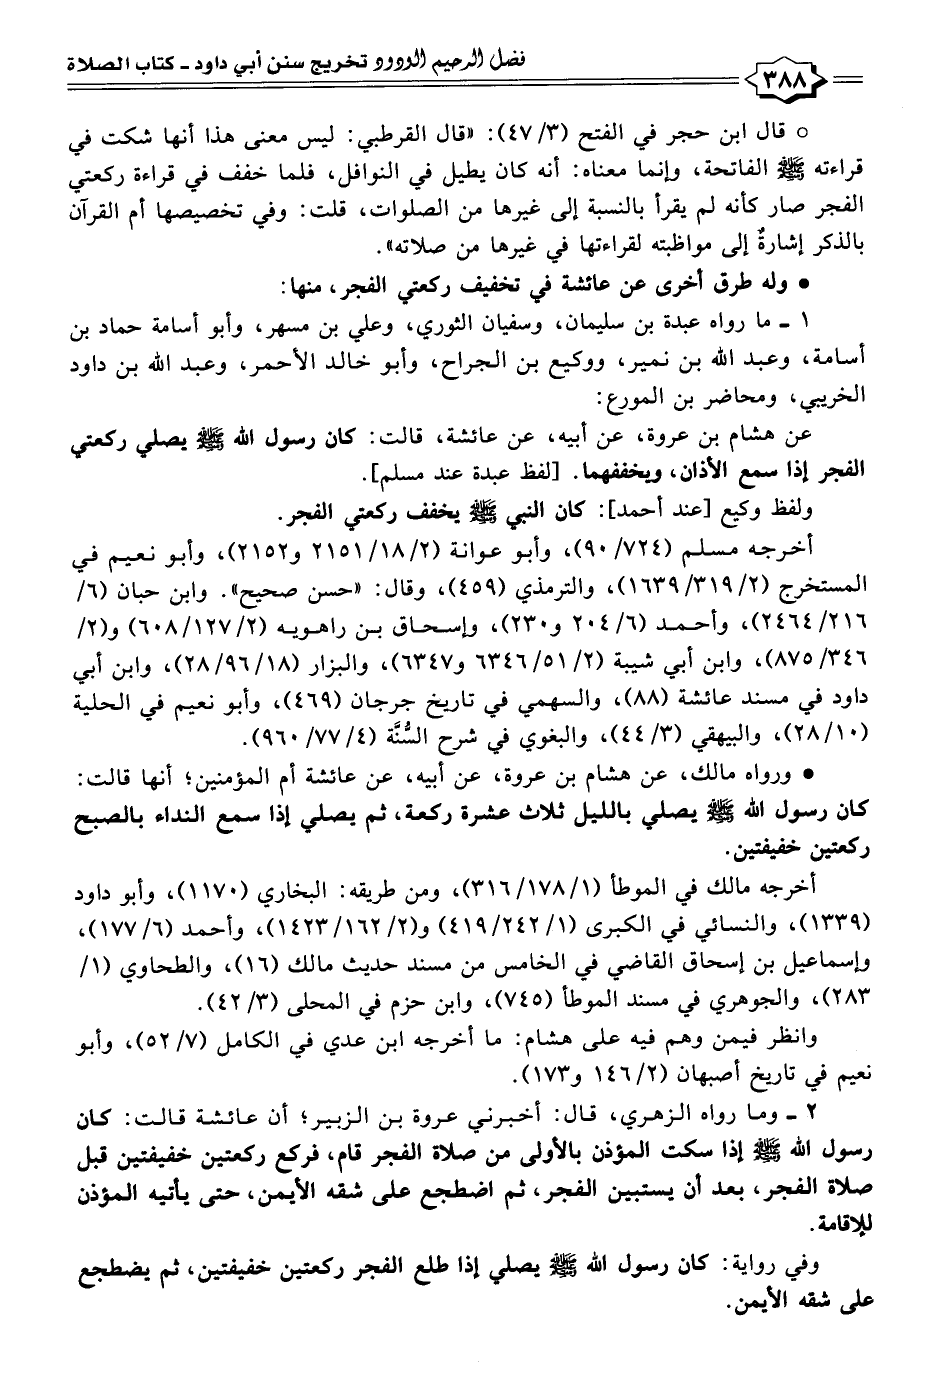 ٣٨٨ فضل الرحيم الودود تخريج سنن أبي داود ـ كتاب الصلاة
○ قال ابن حجر في الفتح (٣/ ٤٧): «قال القرطبي: ليس معنى هذا أنها شكت في
قراءته ﷺ الفاتحة، وإنما معناه: أنه كان يطيل في النوافل، فلما خفف في قراءة ركعتي
الفجر صار كأنه لم يقرأ بالنسبة إلى غيرها من الصلوات، قلت: وفي تخصيصها أم القرآن
بالذكر إشارةٌ إلى مواظبته لقراءتها في غيرها من صلاته».
• وله طرق أخرى عن عائشة في تخفيف ركعتي الفجر، منها:
١ ـ ما رواه عبدة بن سليمان، وسفيان الثوري، وعلي بن مسهر، وأبو أسامة حماد بن
أسامة، وعبد الله بن نمير، ووكيع بن الجراح، وأبو خالد الأحمر، وعبد الله بن داود
الخريبي، ومحاضر بن المورع:
عن هشام بن عروة، عن أبيه، عن عائشة، قالت: كان رسول الله ﷺ يصلي ركعتي
الفجر إذا سمع الأذان، ويخففهما. [لفظ عبدة عند مسلم].
ولفظ وكيع [عند أحمد]: كان النبي ﷺ يخفف ركعتي الفجر.
أخرجه مسلم (٧٢٤/ ٩٠)، وأبو عوانة (٢/ ١٨/ ٢١٥١ و٢١٥٢)، وأبو نعيم في
المستخرج (٢/ ٣١٩/ ١٦٣٩)، والترمذي (٤٥٩)، وقال: «حسن صحيح». وابن حبان (٦/
٢١٦/ ٢٤٦٤)، وأحمد (٦/ ٢٠٤ و٢٣٠)، وإسحاق بن راهويه (٢/ ١٢٧/ ٦٠٨) و(٢/
٣٤٦/ ٨٧٥)، وابن أبي شيبة (٢/ ٥١/ ٦٣٤٦ و٦٣٤٧)، والبزار (١٨/ ٩٦/ ٢٨)، وابن أبي
داود في مسند عائشة (٨٨)، والسهمي في تاريخ جرجان (٤٦٩)، وأبو نعيم في الحلية
(١٠/ ٢٨)، والبيهقي (٣/ ٤٤)، والبغوي في شرح السُّنَّة (٤/ ٧٧/ ٩٦٠).
• ورواه مالك، عن هشام بن عروة، عن أبيه، عن عائشة أم المؤمنين؛ أنها قالت:
كان رسول الله ﷺ يصلي بالليل ثلاث عشرة ركعة، ثم يصلي إذا سمع النداء بالصبح
ركعتين خفيفتين.
أخرجه مالك في الموطأ (١/ ١٧٨/ ٣١٦)، ومن طريقه: البخاري (١١٧٠)، وأبو داود
(١٣٣٩)، والنسائي في الكبرى (١/ ٢٤٢/ ٤١٩) و(٢/ ١٦٢/ ١٤٢٣)، وأحمد (٦/ ١٧٧)،
وإسماعيل بن إسحاق القاضي في الخامس من مسند حديث مالك (١٦)، والطحاوي (١/
٢٨٣)، والجوهري في مسند الموطأ (٧٤٥)، وابن حزم في المحلى (٣/ ٤٢).
وانظر فيمن وهم فيه على هشام: ما أخرجه ابن عدي في الكامل (٧/ ٥٢)، وأبو
نعيم في تاريخ أصبهان (٢/ ١٤٦ و١٧٣).
٢ ـ وما رواه الزهري، قال: أخبرني عروة بن الزبير؛ أن عائشة قالت: كان
رسول الله ﷺ إذا سكت المؤذن بالأولى من صلاة الفجر قام، فركع ركعتين خفيفتين قبل
صلاة الفجر، بعد أن يستبين الفجر، ثم اضطجع على شقه الأيمن، حتى يأتيه المؤذن
للإقامة.
وفي رواية: كان رسول الله ﷺ يصلي إذا طلع الفجر ركعتين خفيفتين، ثم يضطجع
على شقه الأيمن.